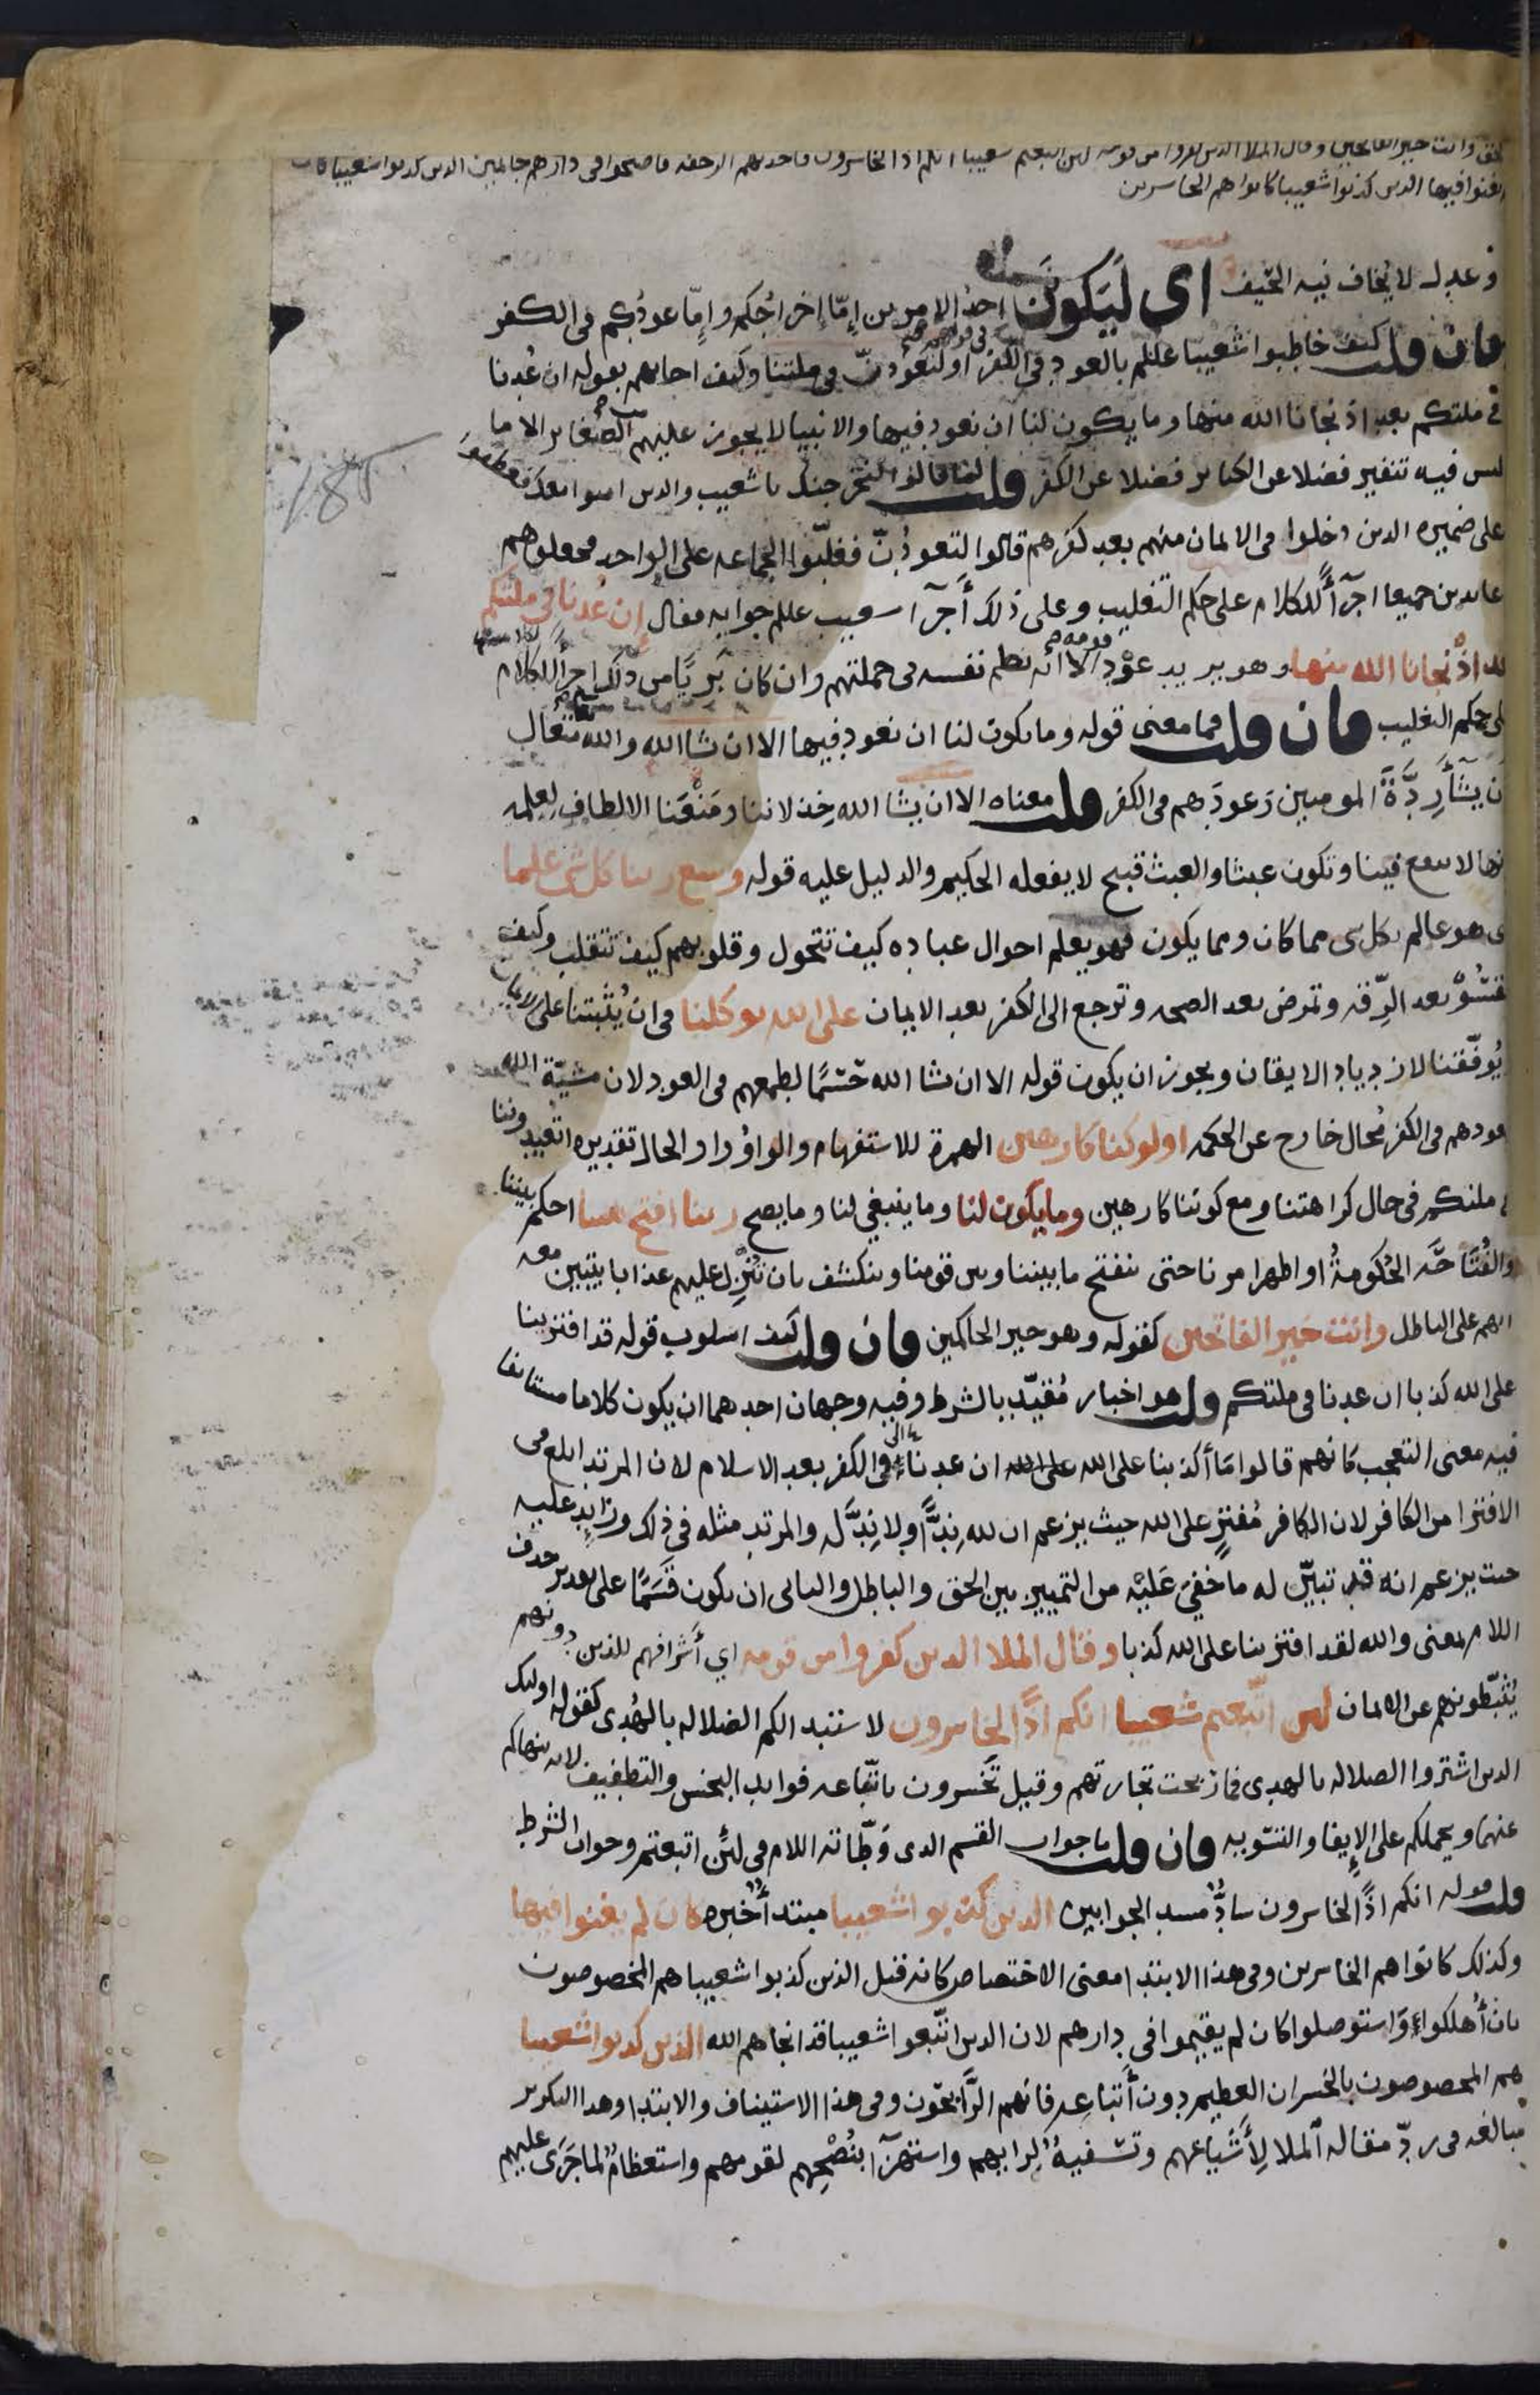 وانت خير الفاتحين وقال الملا الدىن كفروا من قومه لىن اتبعتم شعيبا انكم اذا لخاسرون فاخذتهم الرجفه فاصبحوا فى دارهم جاثمين الدىن كدبوا شعيبا كان
يغنوا فيها الدىن كذبوا شعيبا كانوا هم الخاسرىن
وعدل لا يخاف فيه الحيف اى لَيَكونَنّ احدُ الامرىن اِمّا اِخراجُكم واِمّا عودُكم فى الكفر
فان قلت كيف خاطبوا شعيبا علىلم بالعود فى الكفر فى قولهم او لتعُودنّ فى ملتنا وكيف اجابهم بقوله ان عُدنا
فى ملتكم بعد اذ نجانا الله منها وما يكون لنا ان نعود فيها والانبيا لا يجوز عليهم من الصغاير الا ما
ليس فيه تنفير فضلا عن الكباىر فضلا عن الكفر قلت لما قالوا لنخرجنك ىا شعيب والدىن امنوا معك فعطفوا
على ضميره الدين دخلوا فى الاىمان منهم بعد كفرهم قالوا لتعودُنّ فغلّبوا الجماعه على الواحد فجعلوهم
عاىدين جميعا اجرآً للكلام على حكم التغليب وعلى ذلك أجرآ شعيب علىلم جوابه فقال إن عُدنا فى ملتكم
بعد اذْ نجانا الله منها وهو يريد عوْد قومه الا انه نظم نفسه فى جملتهم وان كان بريًّا من ذلك اجرآً للكلام
على حكم التغليب فان قلت فما معنى قوله وما ىكون لنا ان نعود فيها الا ان ىشا الله والله تعالى متعال
ان يشأ رِدَّةَ المومىين وَعودَهم فى الكفر قلت معناه الا ان يشا الله خِذلاننا ومَنْعَنا الالطاف لِعلمه
انها لا ىىفع فينا وتكون عبثا والعبث قبيح لا يفعله الحكيم والدليل عليه قوله وسع رىنا كل شى علما
اى هو عالم ىكل شى مما كان ومما يكون فهو يعلم احوال عباده كيف تتحول وقلوبهم كيف تتقلب وكيف
تقسُو بعد الرِّقه وتمرض بعد الصحه وترجع الى الكفر بعد الايمان على الله ىوكلنا فى ان يُثبتنا على الاىمان
يُوفّقنا لازدياد الايقان ويجوز ان يكون قوله الا ان ىشا الله حَسْمًا لطمعهم فى العود لان مشيّة الله
لعودهم فى الكفر مُحال خارج عن الحكمه اولو كنا كارهىن الهمزة للاستفهام والواوُ واو الحال تقديره اتعيدوننا
فى ملتكم فى حال كراهتنا ومع كوننا كارهين وما يكون لنا وما ينبغي لنا وما يصح رىنا افتح ىيننا احكم بيننا
والفُتَاحَه الحُكومةُ او اظهر امرنا حتى ىنفتح ما بيننا وىىن قومنا وىنكشف ىان تُنْزِل عليهم عذابا يتبين معه
انهم على الباطل وانت خير الفاتحىن كقوله وهو خير الحاكمين فان قلت كيف اسلوب قوله قد افترينا
على الله كذبا ان عدنا فى ملتكم قلت هو اخبار مُقيّد بالشرط وفيه وجهان احدهما ان يكون كلاما مستانفا
فيه معنى التعجب كانهم قالوا مَا أكذبنا على الله على الله ان عدنا فى الكفر بعد الاسلام لان المرتد ابلغ فى
الافترا من الكافر لان الكافر مُفترٍ على الله حيث يزعم ان لله نِدًّا ولا نِدَّ له والمرتد مثله فى ذلك وزايد عليه
حيث يزعم انه قد تبيّن له ما خَفيَ عَليْه من التمييز بين الحق والباطل والثانى ان ىكون قَسَمًا على تقدير حدف
اللام بمعنى والله لقد افترىنا على الله كذبا وقال الملا الدىن كفروا من قومه اي أَشرافهم للذين دونهم
يُثبّطونهم عن الاىمان لىن اتّبعتم شعيبا انكم اذًا لخاسرون لاستبدالكم الضلاله بالهُدى كقوله اولئك
الدىن اشتروا الضلاله ىالهدى فما ربحت تجارتهم وقيل تَخسرون ىاتّباعه فوايد البخس والتطفيف لانه ينهاكم
عنهما ويحملكم على الإيفا والتسويه فان قلت ما جواب القسم الدى وَطّاته اللام فى لئن اتبعتم وجواب الشرط
قلت قوله انكم اذًا لخاسرون سادٌّ مسد الجوابين الدىن كذبوا شعيبا مبتدأ خبره كان لم يغنوا فيها
وكذلك كانوا هم الخاسرين وفى هذا الابتدا معنى الاختصاص كانه قيل الذين كذبوا شعيبا هم المخصوصون
بان أُهلكوا وَاستوصلوا كان لم يقيموا فى دارهم لان الدىن اتّبعوا شعيبا قد انجاهم الله الذىن كدبوا شعيبا
هم المخصوصون بالخسران العظيم دون أَتباعِه فانهم الرَّابحُون وفى هذا الاستيناف والابتدا وهدا التكرير
مبالغه فى ردّ مقاله الملا لِأَشياعهم وتسفيهٌ لرايهم واستهزآ بنُصْحِهم لقومهم واستعظامٌ لما جَرَى عليهم